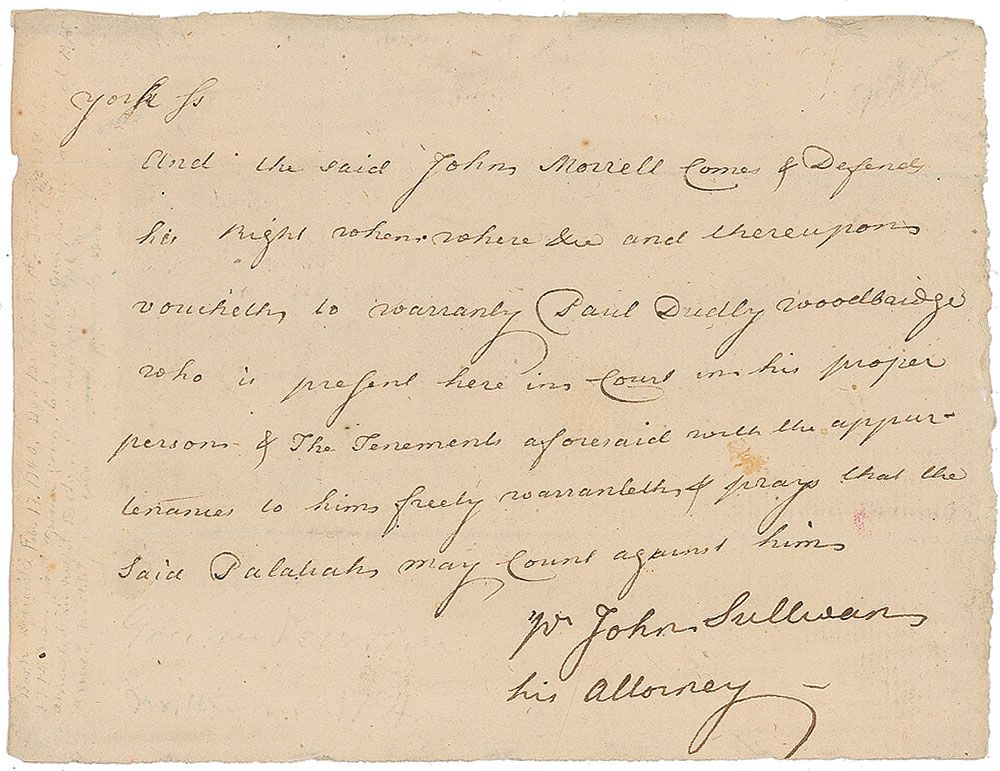 york ss
And the said John Morrell Comes & Defends
his Right when & where &c and thereupon
voucheth to warranty Paul Dudly Woodbridge
who is present here in Court in his proper
person & The Tenements aforesaid with the appur-
tenances to him freely warranteth & prays that the
said Palatiah may Count against him
pr John Sullivan
his Attorney